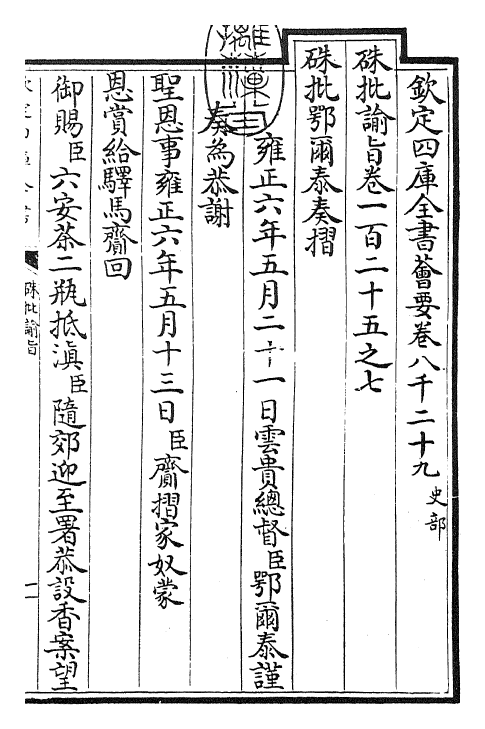 欽定四庫全書薈要卷八千二十九 史部
硃批諭旨卷一百二十五之七
硃批鄂爾泰奏摺
雍正六年五月二十一日雲貴總督臣鄂爾泰謹
奏為恭謝
聖恩事雍正六年五月十三日臣齎摺家奴蒙
恩賞給驛馬齎回
御賜臣六安茶二瓶抵滇臣隨郊迎至署恭設香案望
硃批諭旨
一